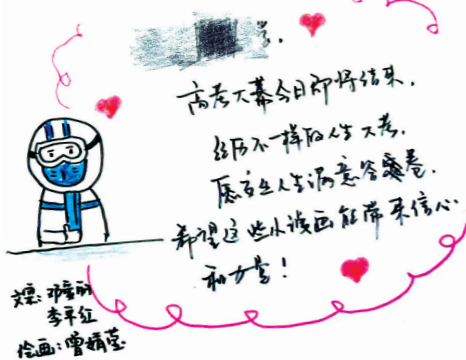 高考大幕今日即将结束，
经历不一样的人生大考，
愿交上人生满意答卷，
希望这些小漫画能带来信心
和力量！
文案：邓
李平红
绘画：曾婧莹